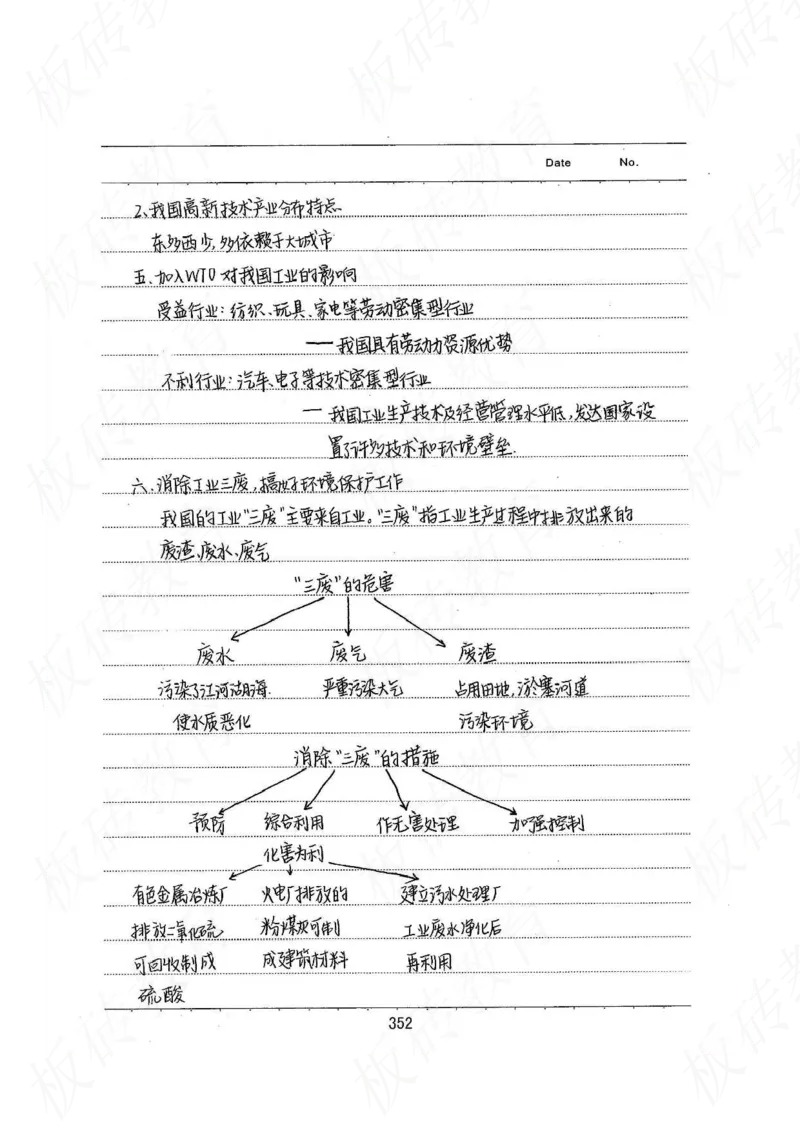 Date No.
2、我国高新技术产业分布特点
东多西少，多依赖于大城市
五、加入WTO对我国工业的影响
受益行业：纺织、玩具、家电等劳动密集型行业
——我国具有劳动力资源优势
不利行业：汽车、电子等技术密集型行业
—我国工业生产技术及经营管理水平低，发达国家设
置了许多技术和环境壁垒.
六、消除工业三废，搞好环境保护工作
我国的工业“三废”主要来自工业。“三废”指工业生产过程中排放出来的
废渣、废水、废气
“三废”的危害
废水 废气 废渣
污染了江河湖海. 严重污染大气 占用田地，淤塞河道
使水质恶化 污染环境
消除“三废”的措施
预防 综合利用 作无害处理 加强控制
化害为利
有色金属冶炼厂 火电厂排放的 建立污水处理厂
排放二氧化硫 粉煤灰可制 工业废水净化后
可回收制成 成建筑材料 再利用
硫酸
352
板砖教育